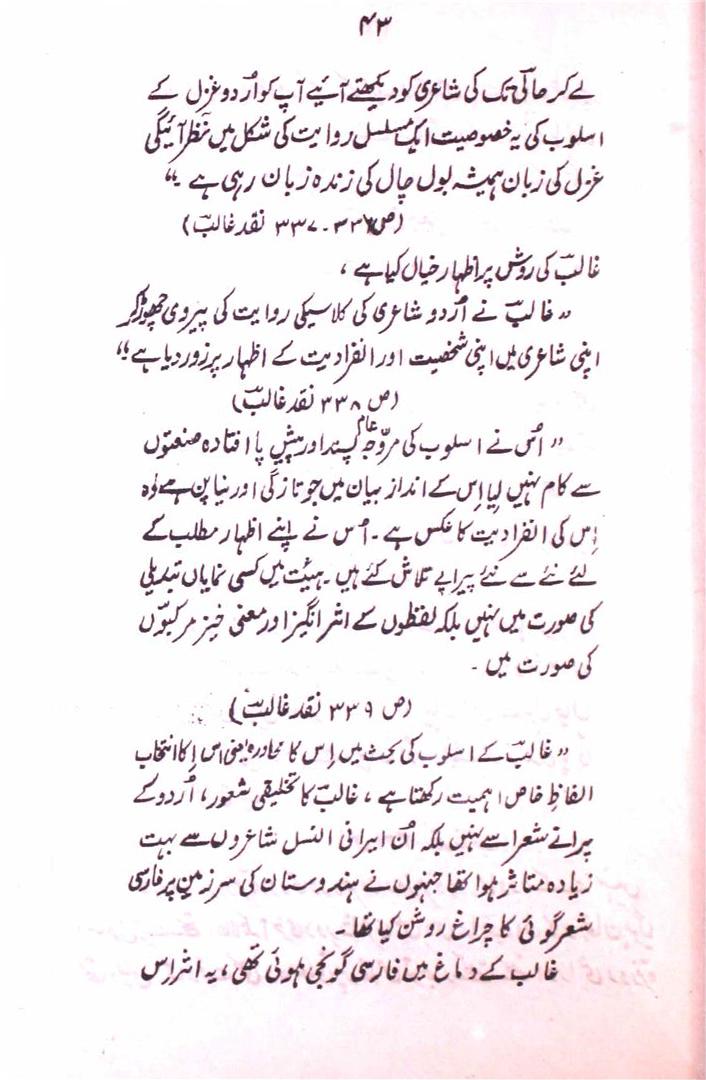 ۴۳
لے کر حالیؔ تک کی شاعری کو دیکھتے آئیے آپ کو اُردو غزل کے
اسلوب کی یہ خصوصیت ایک مسلسل روایت کی شکل میں نظر آئیگی
غزل کی زبان ہمیشہ بول چال کی زندہ زبان رہی ہے ۔"
(ص ۳۳۶-۳۳۷ نقد غالبؔ)
غالبؔ کی روش پر اظہار خیال کیا ہے ،
" غالبؔ نے اُردو شاعری کی کلاسیکی روایت کی پیروی چھوڑ کر
اپنی شاعری میں اپنی شخصیت اور انفرادیت کے اظہار پر زور دیا ہے "
(ص ۳۳۸ نقد غالبؔ)
" اُس نے اسلوب کی مروّجہ عام پسند اور پیش پا افتادہ صنعتوں
سے کام نہیں لیا اِس کے انداز بیان میں جو تازگی اور نیا پن ہے وہ
اِس کی انفرادیت کا عکس ہے ۔ اُس نے اپنے اظہار مطلب کے
لئے نئے سے نئے پیرایے تلاش کئے ہیں ۔ ہیئت میں کسی نمایاں تبدیلی
کی صورت میں نہیں بلکہ لفظوں کے اثر انگیز اور معنی خیز مرکبوّں
کی صورت میں ۔
(ص ۳۳۹ نقد غالبؔ)
" غالبؔ کے اسلوب کی بحث میں اِس کا محاورہ یعنی اس کا انتخاب
الفاظِ خاص اہمیت رکھتا ہے ، غالبؔ کا تخلیقی شعور ، اُردو کے
پرانے شعرا سے نہیں بلکہ اُن ایرانی النسل شاعروں سے بہت
زیادہ متاثر ہوا تھا جنہوں نے ہندوستان کی سرزمین پر فارسی
شعر گوئی کا چراغ روشن کیا تھا ۔
غالب کے دماغ میں فارسی گونجی ہوئی تھی ، یہ اثر اس